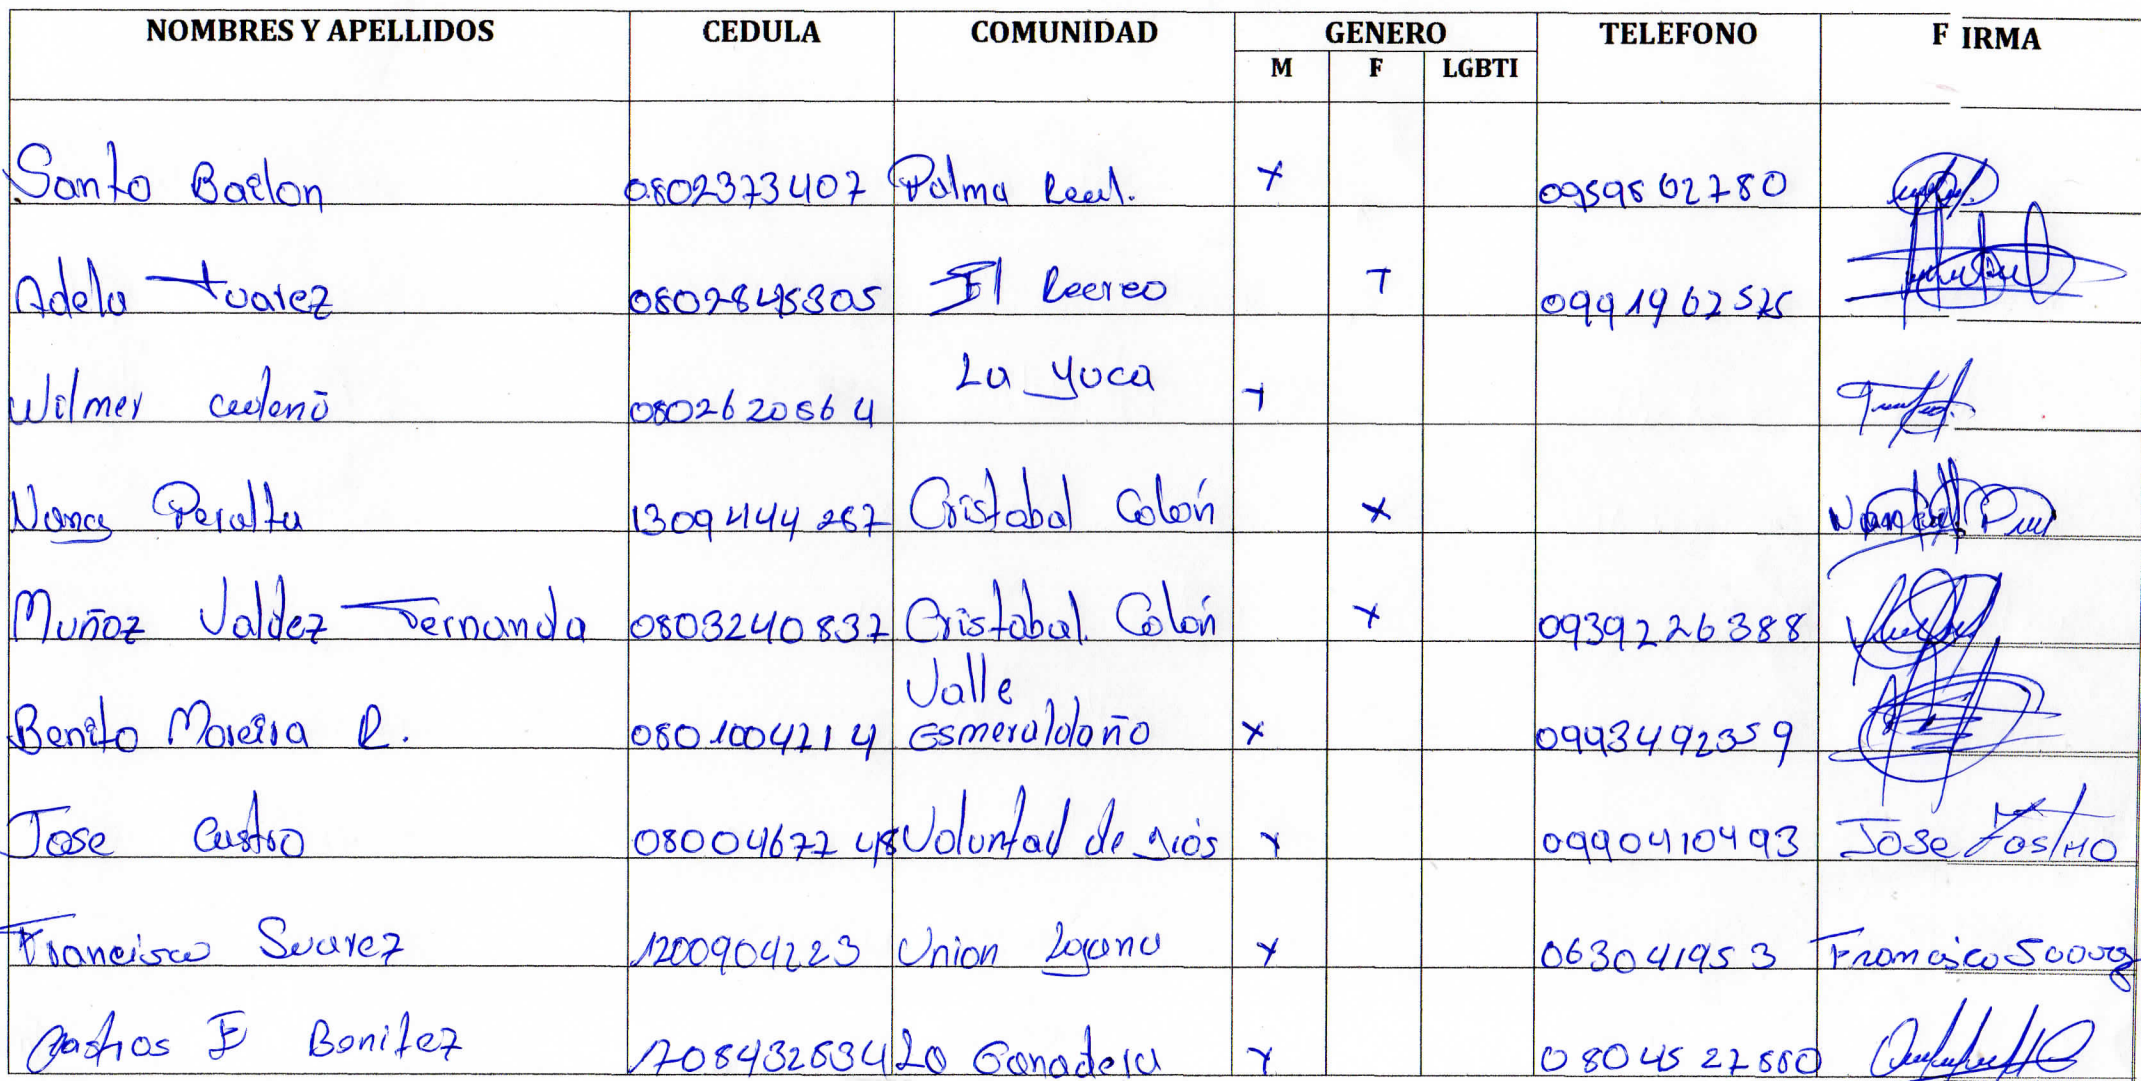 NOMBRES Y APELLIDOS CEDULA COMUNIDAD GENERO TELEFONO F IRMA
M F LGBTI
Santo Bailon 0802373407 Palma Real. x 0959802780
Adela Tuarez 0802845305 El Recreo T
Wilmer Cedeño La Yuca
Nancy Peralta 1309444267 Cristobal Colón x
Muñoz Valdez Fernanda 0803240837 Cristobal Colón x 0939226388
Valle
Benito Moreira R. 0801004214 Esmeraldaño x 0993492359
Jose Castro 0800467748 Voluntad de Dios x 0990410493 Jose Castro
Francisco Suarez 1200904223 Union Lojana x 063041953 Francisco
E Benitez 1708432634 La Ganadera x